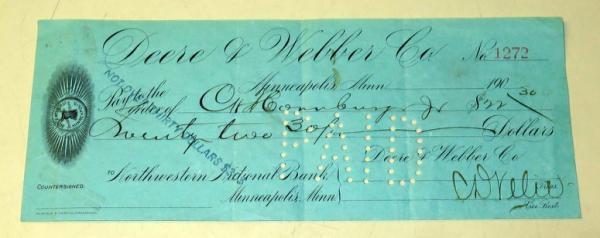 Deere & Webber Co. No. 1272
Minneapolis, Minn. 190
Pay to the
Order of $22 30/
Twenty two 30/00 Dollars
NOT OVER THIRTY DOLLARS $30$
PAID
Deere & Webber Co.
TO Northwestern National Bank
Minneapolis, Minn.
COUNTERSIGNED.
C D Velie
Vice Prest.